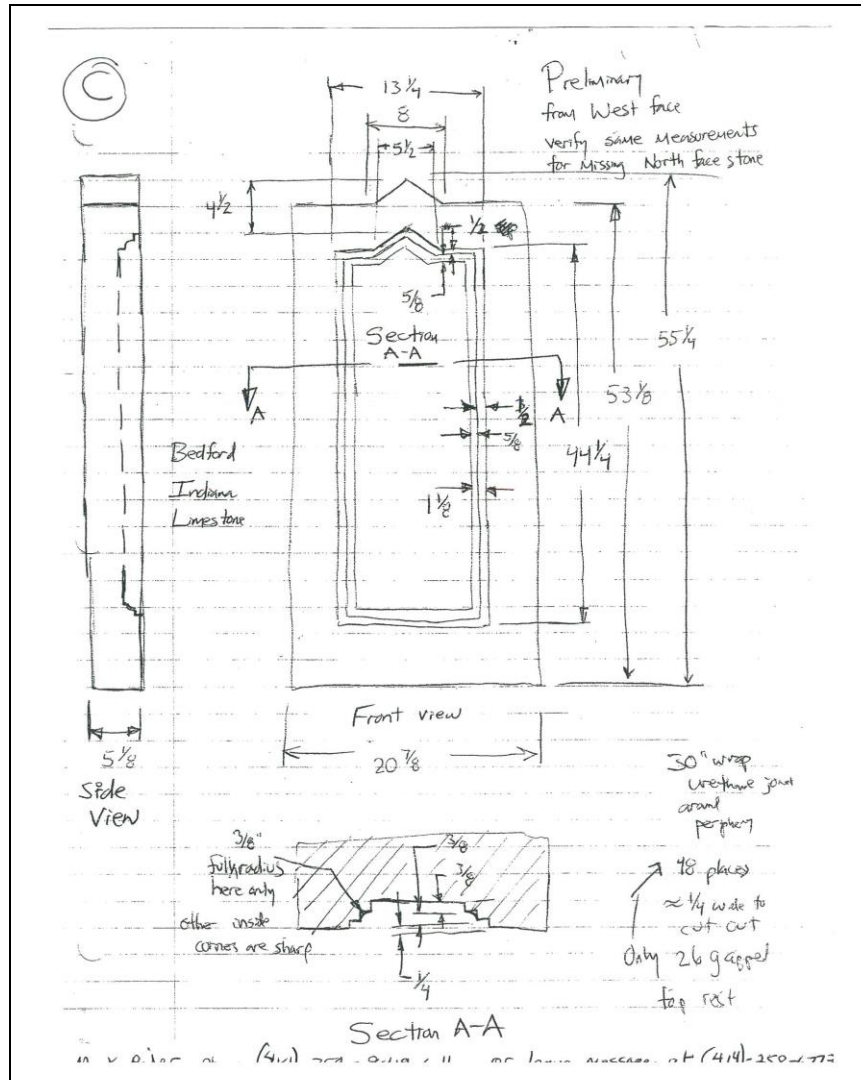 C
Preliminary
from West face
verify same measurements
for missing North face stone
13 1/4
8
5 1/2
4 1/2
1/2
5/8
Section
A-A
A
A
1/2
5/8
1 1/8
44 1/4
53 1/8
55 1/4
Bedford
Indiana
Limestone
Front view
5 1/8
20 7/8
Side
View
30" wrap
urethane joint
around
periphery
48 places
≈ 1/4 wide to
cut out
Only 26 gapped
top rest
3/8"
full radius
here only
other inside
corners are sharp
3/8
3/8
1/4
Section A-A